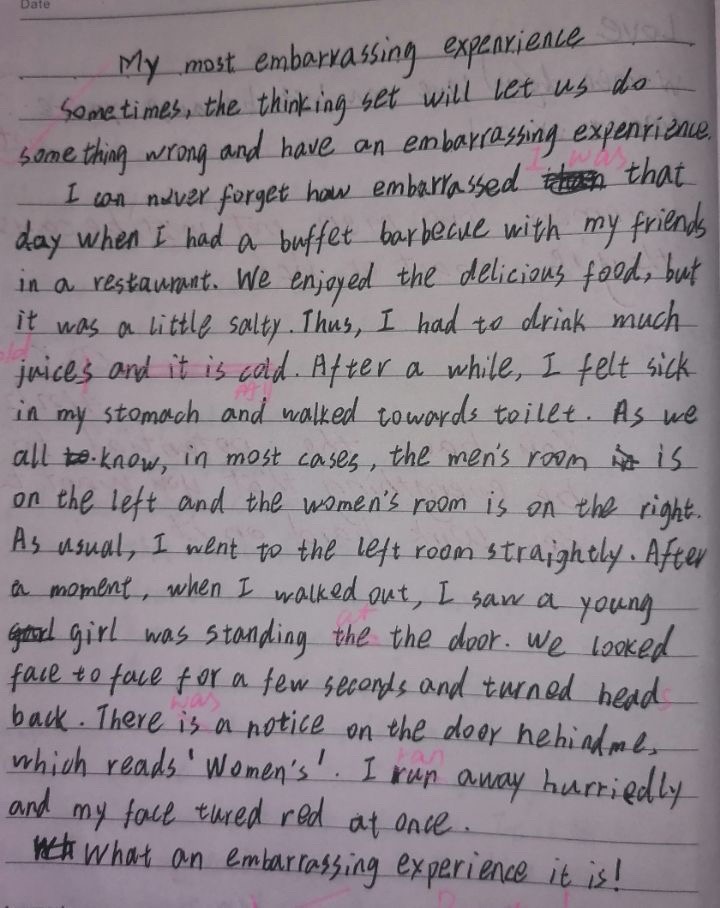 Date
My most embarrassing expenrience
Sometimes, the thinking set will let us do
something wrong and have an embarrassing expenrience.
I was
I can never forget how embarrassed that
day when I had a buffet barbecue with my friends
in a restaurant. We enjoyed the delicious food, but
it was a little salty. Thus, I had to drink much
juices and it is cold. After a while, I felt sick
in my stomach and walked towards toilet. As we
all to know, in most cases, the men's room is
on the left and the women's room is on the right.
As usual, I went to the left room straightly. After
a moment, when I walked out, I saw a young
at
girl was standing the the door. We looked
face to face for a few seconds and turned heads
was
back. There is a notice on the door hehind me,
ran
which reads 'Women's'. I run away hurriedly
and my face tured red at once.
What an embarrassing experience it is!